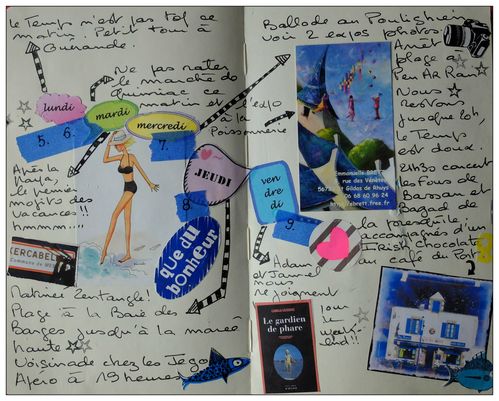 le Temps n'est pas top ce
matin. Petit tour à
Guérande.
Ne pas rater
le marché de
Quimiac ce
matin et l'expo
à la
Poissonnerie
lundi
mardi
mercredi
JEUDI
ven
dre
di
5.
6.
7.
8
9.
Après la
le premier
mojitos des
vacances !!
hmmm....
KERCABELL
Commune de MES
que du
bonheur
Matinée Zentangle!
Plage à la Baie des
Barges jusqu'à la marée
haute
Voisinade chez les Jego
Apéro à 19 heures
Ballade au Pouliguen
voir 2 expos photos
Arrêt
plage à
Pen AR Ran
Nous
restons
jusque 20h,
le Temps
est doux.
21h30 concert
les Fous de
Bassan et
Bagad de
la presqu'île!
accompagnés d'un
IRish chocolate
au café du Port
Emmanuelle BRETT
rue des Vénètes
Gildas de Rhuys
06 68 60 96 24
ebrett.free.fr
nous
rejoignent
pour
le
week-
end!!
Le gardien
de phare